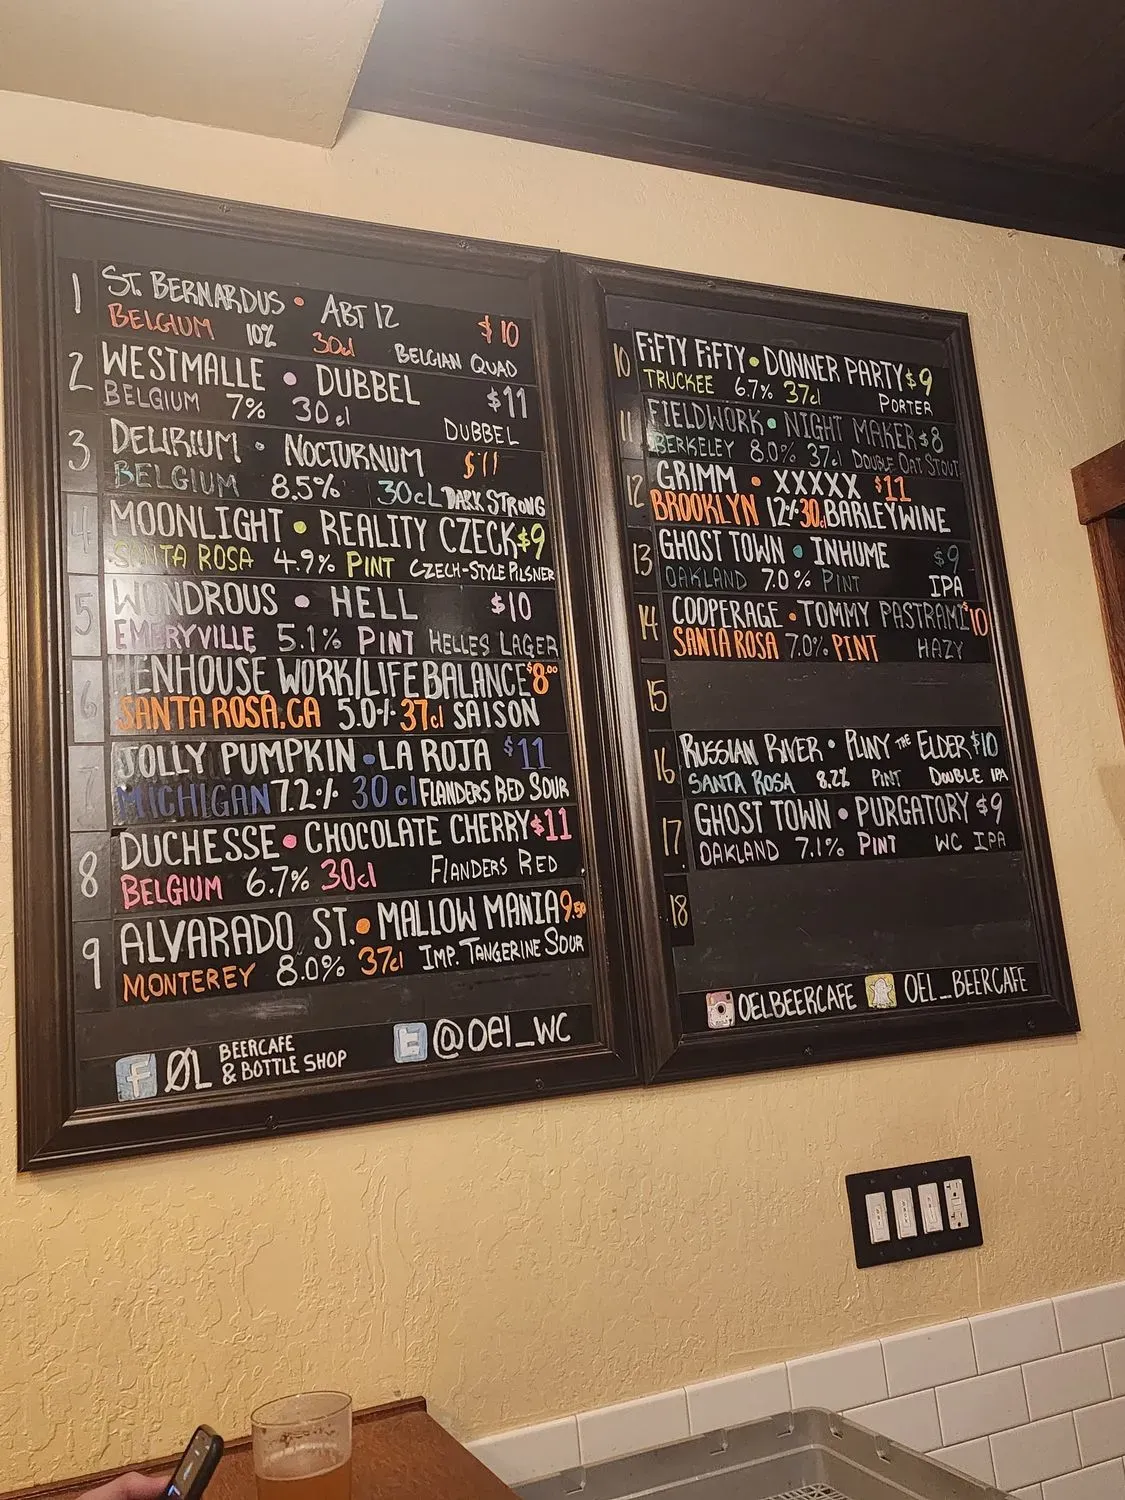 1 ST. BERNARDUS • ABT 12
BELGIUM 10% 30cl BELGIAN QUAD $10
2 WESTMALLE • DUBBEL $11
BELGIUM 7% 30cl DUBBEL
3 DELIRIUM • NOCTURNUM $11
BELGIUM 8.5% 30cl DARK STRONG
4 MOONLIGHT • REALITY CZECK $9
SANTA ROSA 4.9% PINT CZECH-STYLE PILSNER
5 WONDROUS • HELL $10
EMERYVILLE 5.1% PINT HELLES LAGER
6 HENHOUSE WORK/LIFE BALANCE $8.00
SANTA ROSA, CA 5.0% 37cl SAISON
7 JOLLY PUMPKIN • LA ROJA $11
MICHIGAN 7.2% 30cl FLANDERS RED SOUR
8 DUCHESSE • CHOCOLATE CHERRY $11
BELGIUM 6.7% 30cl FLANDERS RED
9 ALVARADO ST. • MALLOW MANIA 9.50
MONTEREY 8.0% 37cl IMP. TANGERINE SOUR
f ØL BEERCAFE
& BOTTLE SHOP
t @OEL_WC
10 FIFTY FIFTY • DONNER PARTY $9
TRUCKEE 6.7% 37cl PORTER
11 FIELDWORK • NIGHT MAKER $8
BERKELEY 8.0% 37cl DOUBLE OAT STOUT
12 GRIMM • XXXXX $11
BROOKLYN 12% 30cl BARLEYWINE
13 GHOST TOWN • INHUME $9
OAKLAND 7.0% PINT IPA
14 COOPERAGE • TOMMY PASTRAMI $10
SANTA ROSA 7.0% PINT HAZY
15
16 RUSSIAN RIVER • PLINY THE ELDER $10
SANTA ROSA 8.2% PINT DOUBLE IPA
17 GHOST TOWN • PURGATORY $9
OAKLAND 7.1% PINT WC IPA
18
OELBEERCAFE OEL_BEERCAFE